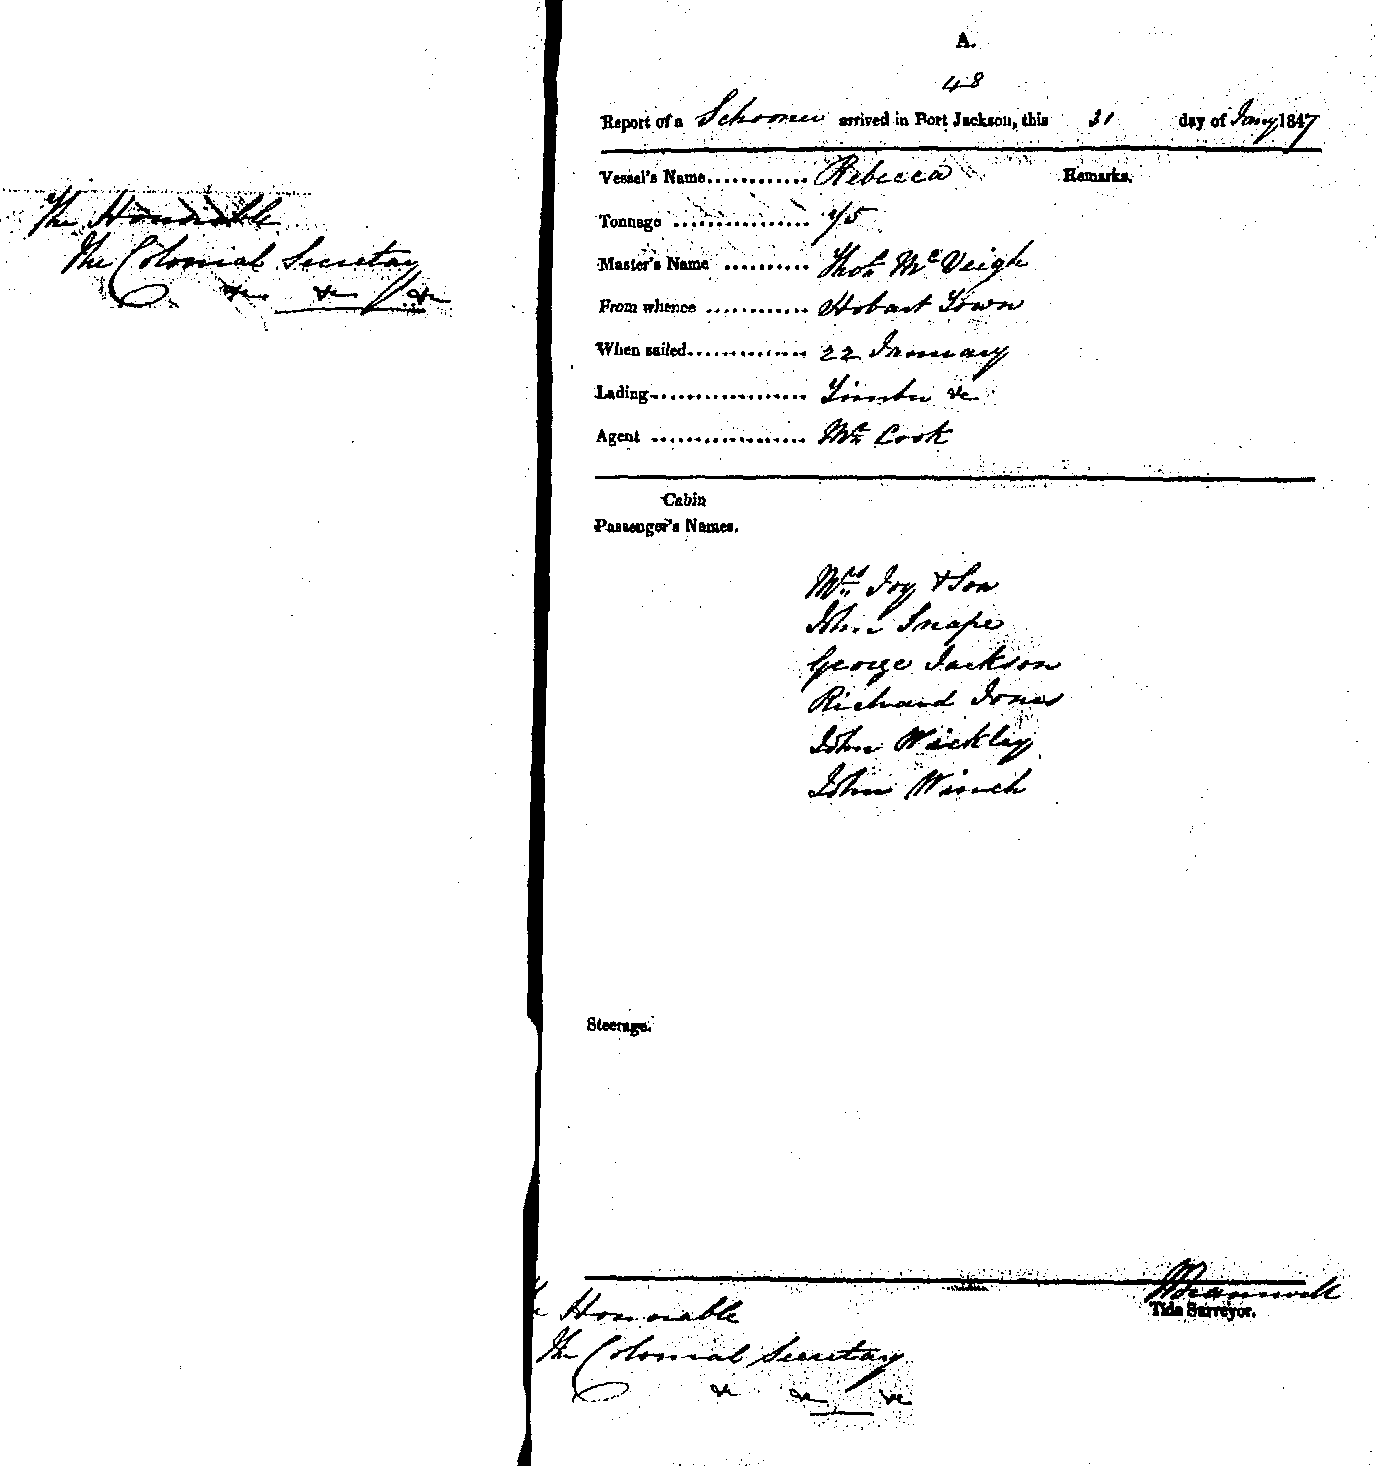 The Honorable
The Colonial Secretary
&c &c &c
A.
48
Report of a Schooner arrived in Port Jackson, this 31 day of Jany 1847
Vessel's Name............ Rebecca Remarks.
Tonnage ................ 75
Master's Name .......... Thos. McVeigh
From whence ............ Hobart Town
When sailed.............. 22 January
Lading.................. Timber &c
Agent .................. Mr Cook
Cabin
Passenger's Names.
Mrs Joy & Son
John Snape
George Jackson
Richard Jones
John Wickley
John Winch
Steerage.
Tide Surveyor.
The Honorable
The Colonial Secretary
&c &c &c